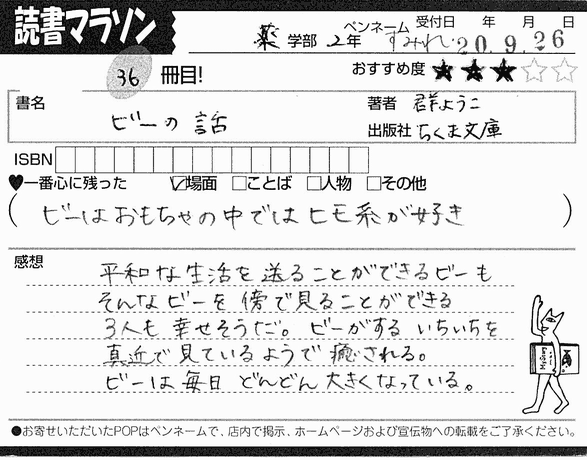 読書マラソン
ペンネーム 受付日 年 月 日
薬 学部 2年 すみれ 20.9.26
36 冊目!
おすすめ度 ★★★☆☆
書名 ビーの話
著者 群ようこ
出版社 ちくま文庫
ISBN
♥一番心に残った ☑場面 □ことば □人物 □その他
(ビーはおもちゃの中ではヒモ系が好き)
感想
平和な生活を送ることができるビーも
そんなビーを傍で見ることができる
3人も幸せそうだ。ビーがするいちいちを
真近で見ているようで癒される。
ビーは毎日どんどん大きくなっている。
●お寄せいただいたPOPはペンネームで、店内で掲示、ホームページおよび宣伝物への転載をご了承ください。